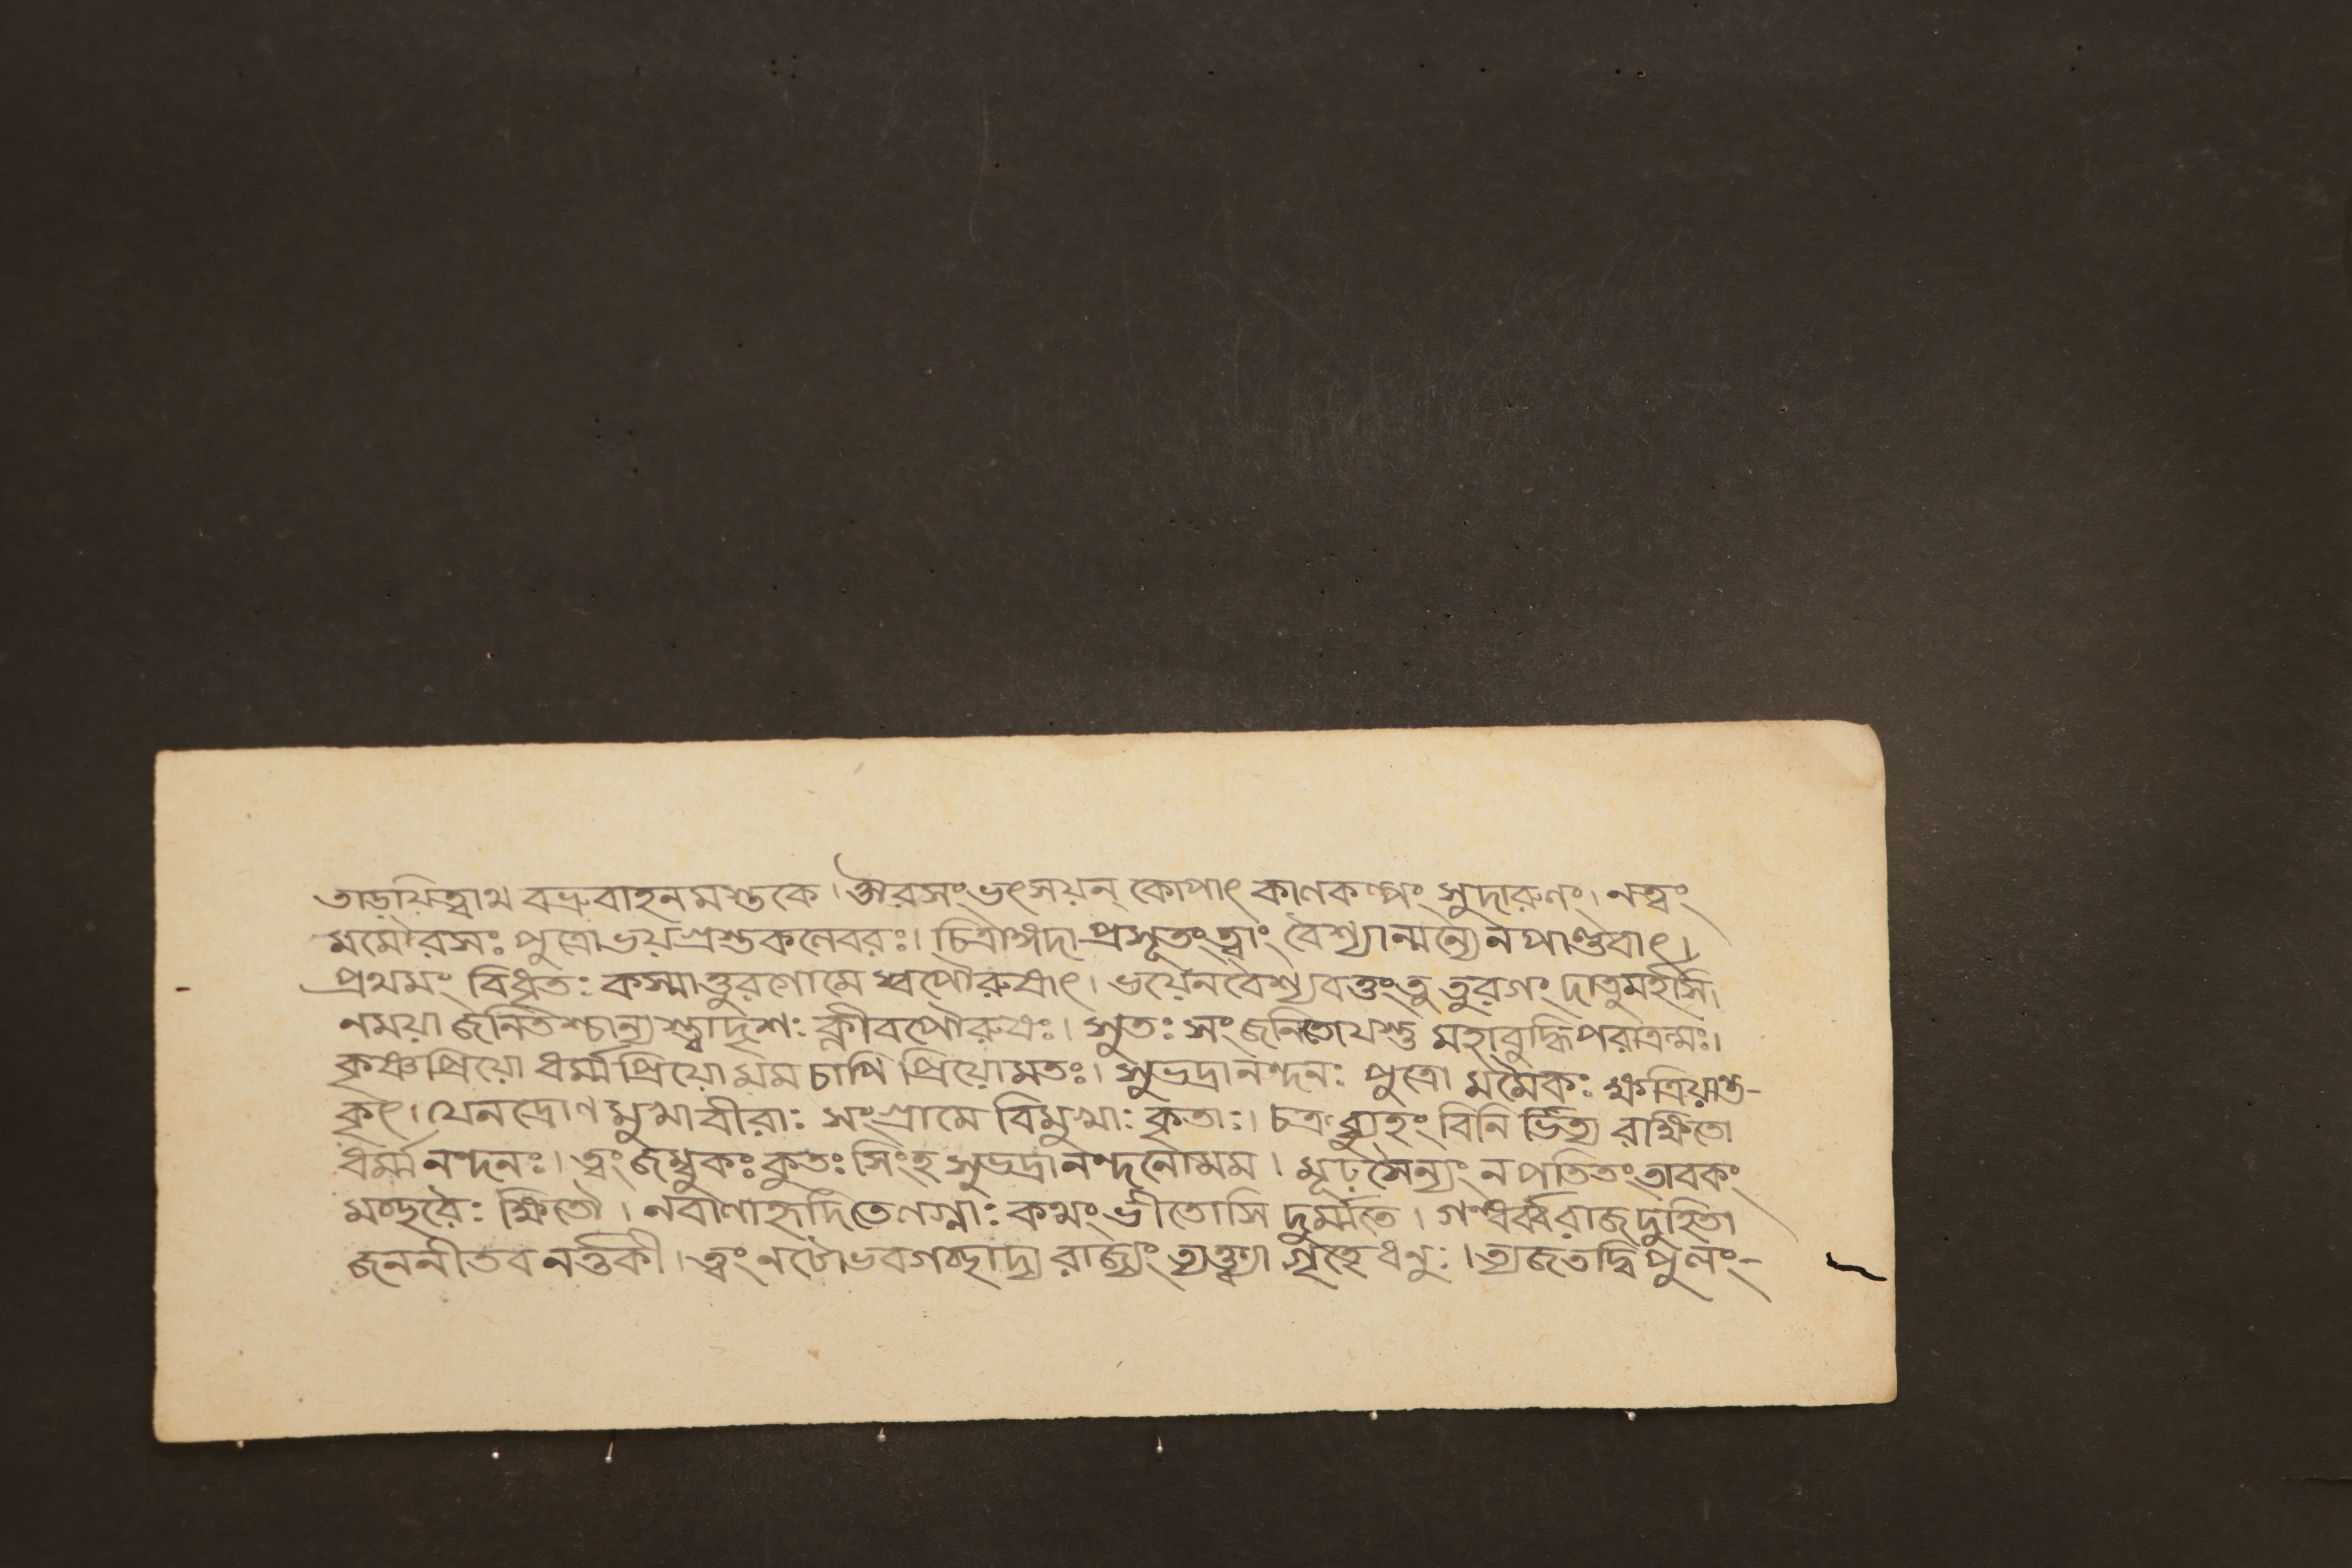 তাড়য়িত্বাথ বভ্রুবাহনমস্তকে। ঔরসং ভৎসয়ন্ কোপাৎ কাণকল্পং সুদারুণং। নত্বং
মমৌরসঃ পুত্রো ভয়গ্রস্তকলেবরঃ। চিত্রাঙ্গদা প্রসূতং ত্বাং বৈশ্যান্মন্যে ন পাণ্ডবাৎ।
প্রথমং বিধৃতঃ কস্মাত্তুরগো মে স্বপৌরুষাৎ। ভয়েন বৈশ্যবত্তং তু তুরগং দাতুমর্হসি।
নময়া জনিতশ্চান্যস্ত্বাদৃশঃ ক্লীবপৌরুষঃ। সুতঃ সংজনিতো যস্তু মহাবুদ্ধিপরাক্রমঃ।
কৃষ্ণপ্রিয়ো ধর্ম্মপ্রিয়ো মম চাপি প্রিয়োমতঃ। সুভদ্রানন্দনঃ পুত্রো মমৈকঃ ক্ষত্রিয়ান্ত-
কৃৎ। যেন দ্রোণমুখা বীরাঃ সংগ্রামে বিমুখাঃ কৃতাঃ। চক্রব্যুহং বিনির্ভিত্য রক্ষিতো
ধর্ম্মনন্দনঃ। ত্বং জম্বুকঃ কুতঃ সিংহ সুভদ্রানন্দনোমম। মূঢ় সৈন্যং ন পতিতং তাবকং
মচ্ছরৈঃ ক্ষিতৌ। নবাণাহৃদি তে লগ্নাঃ কথং ভীতোসি দুর্ম্মতে। গন্ধর্ব্বরাজদুহিতা
জননী তব নর্ত্তকী। ত্বং নটো ভব গচ্ছাদ্য রাজ্যং ত্যক্ত্বা গৃহে ধনুঃ। ত্যজ তদ্বিপুলং-